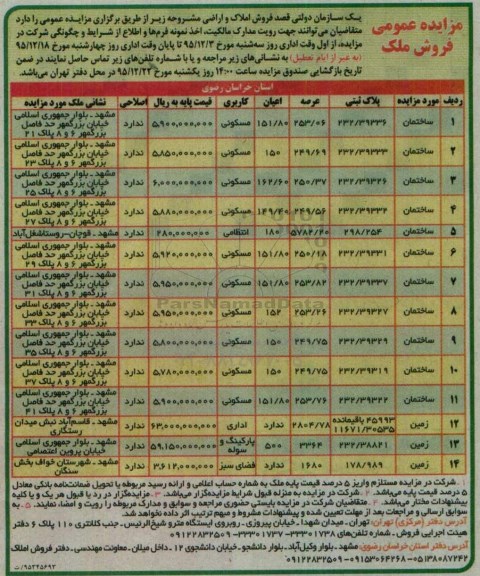 مزایده عمومی
فروش ملک
یک سازمان دولتی قصد فروش املاک و اراضی مشروحه زیر از طریق برگزاری مزایده عمومی را دارد
متقاضیان می‌توانند جهت رویت مدارک مالکیت، اخذ نمونه فرم‌ها و اطلاع از شرایط و چگونگی شرکت در
مزایده، از اول وقت اداری روز سه‌شنبه مورخ ۹۵/۱۲/۳ تا پایان وقت اداری روز چهارشنبه مورخ ۹۵/۱۲/۱۸
(به غیر از ایام تعطیل) به نشانی‌های زیر مراجعه و یا با شماره تلفن‌های زیر تماس حاصل نمایند در ضمن
تاریخ بازگشایی صندوق مزایده ساعت ۱۴:۰۰ روز یکشنبه مورخ ۹۵/۱۲/۲۲ در محل دفتر تهران می‌باشد.
استان خراسان رضوی
ردیف مورد مزایده پلاک ثبتی عرصه اعیان کاربری قیمت پایه به ریال اصلاحی نشانی ملک مورد مزایده
۱ ساختمان ۲۳۲/۳۹۳۳۶ ۲۵۳/۰۶ ۱۵۱/۸۰ مسکونی ۵,۹۰۰,۰۰۰,۰۰۰ ندارد مشهد ـ بلوار جمهوری اسلامی خیابان بزرگمهر حد فاصل بزرگمهر ۶ و ۸ پلاک ۲۱
۲ ساختمان ۲۳۲/۳۹۳۳۳ ۲۴۹/۶۹ ۱۵۰ مسکونی ۵,۸۵۰,۰۰۰,۰۰۰ ندارد مشهد ـ بلوار جمهوری اسلامی خیابان بزرگمهر حد فاصل بزرگمهر ۶ و ۸ پلاک ۲۳
۳ ساختمان ۲۳۲/۳۹۳۲۶ ۲۵۰/۳۷ ۱۶۲/۶۰ مسکونی ۶,۰۰۰,۰۰۰,۰۰۰ ندارد مشهد ـ بلوار جمهوری اسلامی خیابان بزرگمهر حد فاصل بزرگمهر ۶ و ۸ پلاک ۲۵
۴ ساختمان ۲۳۲/۳۹۳۳۲ ۲۴۹/۵۶ ۱۴۹/۴۰ مسکونی ۵,۸۸۰,۰۰۰,۰۰۰ ندارد مشهد ـ بلوار جمهوری اسلامی خیابان بزرگمهر حد فاصل بزرگمهر ۶ و ۸ پلاک ۲۷
۵ ساختمان ۲۹۸/۲۵۴ ۵۷۸۲/۲۰ ۱۸۰ انتظامی ۲۸۰,۰۰۰,۰۰۰ ندارد مشهد ـ قوچان-روستاشغل‌آباد
۶ ساختمان ۲۳۲/۳۹۳۳۱ ۲۵۰/۱۸ ۱۵۱/۸۰ مسکونی ۵,۹۲۰,۰۰۰,۰۰۰ ندارد مشهد ـ بلوار جمهوری اسلامی خیابان بزرگمهر حد فاصل بزرگمهر ۶ و ۸ پلاک ۲۹
۷ ساختمان ۲۳۲/۳۹۳۳۷ ۲۵۳/۸۲ ۱۵۱/۸۰ مسکونی ۵,۹۵۰,۰۰۰,۰۰۰ ندارد مشهد ـ بلوار جمهوری اسلامی خیابان بزرگمهر حد فاصل بزرگمهر ۶ و ۸ پلاک ۳۱
۸ ساختمان ۲۳۲/۳۹۳۲۷ ۲۵۳/۲۶ ۱۵۲ مسکونی ۵,۹۵۰,۰۰۰,۰۰۰ ندارد مشهد ـ بلوار جمهوری اسلامی خیابان بزرگمهر حد فاصل بزرگمهر ۶ و ۸ پلاک ۳۳
۹ ساختمان ۲۳۲/۳۹۳۲۹ ۲۴۹/۷۵ ۱۵۰ مسکونی ۵,۸۰۰,۰۰۰,۰۰۰ ندارد مشهد ـ بلوار جمهوری اسلامی خیابان بزرگمهر حد فاصل بزرگمهر ۶ و ۸ پلاک ۳۵
۱۰ ساختمان ۲۳۲/۳۹۳۱۹ ۲۴۹/۷۵ ۱۵۰ مسکونی ۵,۷۸۰,۰۰۰,۰۰۰ ندارد مشهد ـ بلوار جمهوری اسلامی خیابان بزرگمهر حد فاصل بزرگمهر ۶ و ۸ پلاک ۳۷
۱۱ ساختمان ۲۳۲/۳۹۳۲۲ ۲۵۳/۷۶ ۱۵۱/۸۰ مسکونی ۵,۹۰۰,۰۰۰,۰۰۰ ندارد مشهد ـ بلوار جمهوری اسلامی خیابان بزرگمهر حد فاصل بزرگمهر ۶ و ۸ پلاک ۴۱
۱۲ زمین ۴۵۹۹۳ باقیمانده ۱۱۶۷۱/۳۰۵۳۵ ۲۸۰۴/۷۸ ندارد اداری ۶۳,۰۰۰,۰۰۰,۰۰۰ ندارد مشهد ـ قاسم‌آباد نبش میدان رستگاری
۱۳ زمین ۲۳۲/۳۸۸۲۱ ۳۳۶۴ ۵۰۰ پارکینگ و سوله ۵۹,۱۵۰,۰۰۰,۰۰۰ ندارد مشهد ـ بلوار جمهوری اسلامی خیابان پروین اعتصامی
۱۴ زمین ۱۷۸/۹۸۹ ۱۶۸۰ ندارد فضای سبز ۳,۶۱۲,۰۰۰,۰۰۰ ندارد مشهد ـ شهرستان خواف بخش سنگان
۱. شرکت در مزایده مستلزم واریز ۵ درصد قیمت پایه ملک به شماره حساب اعلامی و ارائه رسید مربوطه یا تحویل ضمانت‌نامه بانکی معادل
۵ درصد قیمت پایه می‌باشد. ۲. شرکت در مزایده به منزله قبول شرایط مزایده‌گزار می‌باشد. ۳. مزایده‌گزار در رد یا قبول هر یک و یا کلیه
پیشنهادات مختار می‌باشد. ۴. متقاضی شرکت در مزایده بایستی حضوری مراجعه و سوابق و مدارک مربوطه را رویت و امضاء نمایند. ۵. به
سوابق ارسالی و مراجعات بعد از مهلت تعیین شده و پیشنهادات مشروط و مبهم ترتیب اثر داده نخواهد شد.
آدرس دفتر (مرکزی) تهران: تهران ـ میدان شهدا ـ خیابان پیروزی ـ روبروی ایستگاه مترو شیخ‌الرئیس ـ جنب کلانتری ۱۱۰ پلاک ۶ دفتر
هیئت اجرایی فروش ـ شماره تلفن‌های ۳۳۳۰۱۷۳۸-۳۳۳۰۱۷۳۷-۰۹۱۲۲۸۳۲۵۰۹
آدرس دفتر استان خراسان رضوی: مشهد ـ بلوار وکیل‌آباد ـ بلوار دانشجو ـ خیابان دانشجوی ۱۲ ـ داخل میلان ـ معاونت مهندسی ـ دفتر فروش املاک
۰۵۱۳۸۰۸۷۲۴۲-۰۹۱۵۳۰۶۴۲۶۸-۰۹۱۲۲۸۳۲۵۰۹
ParsNamadData